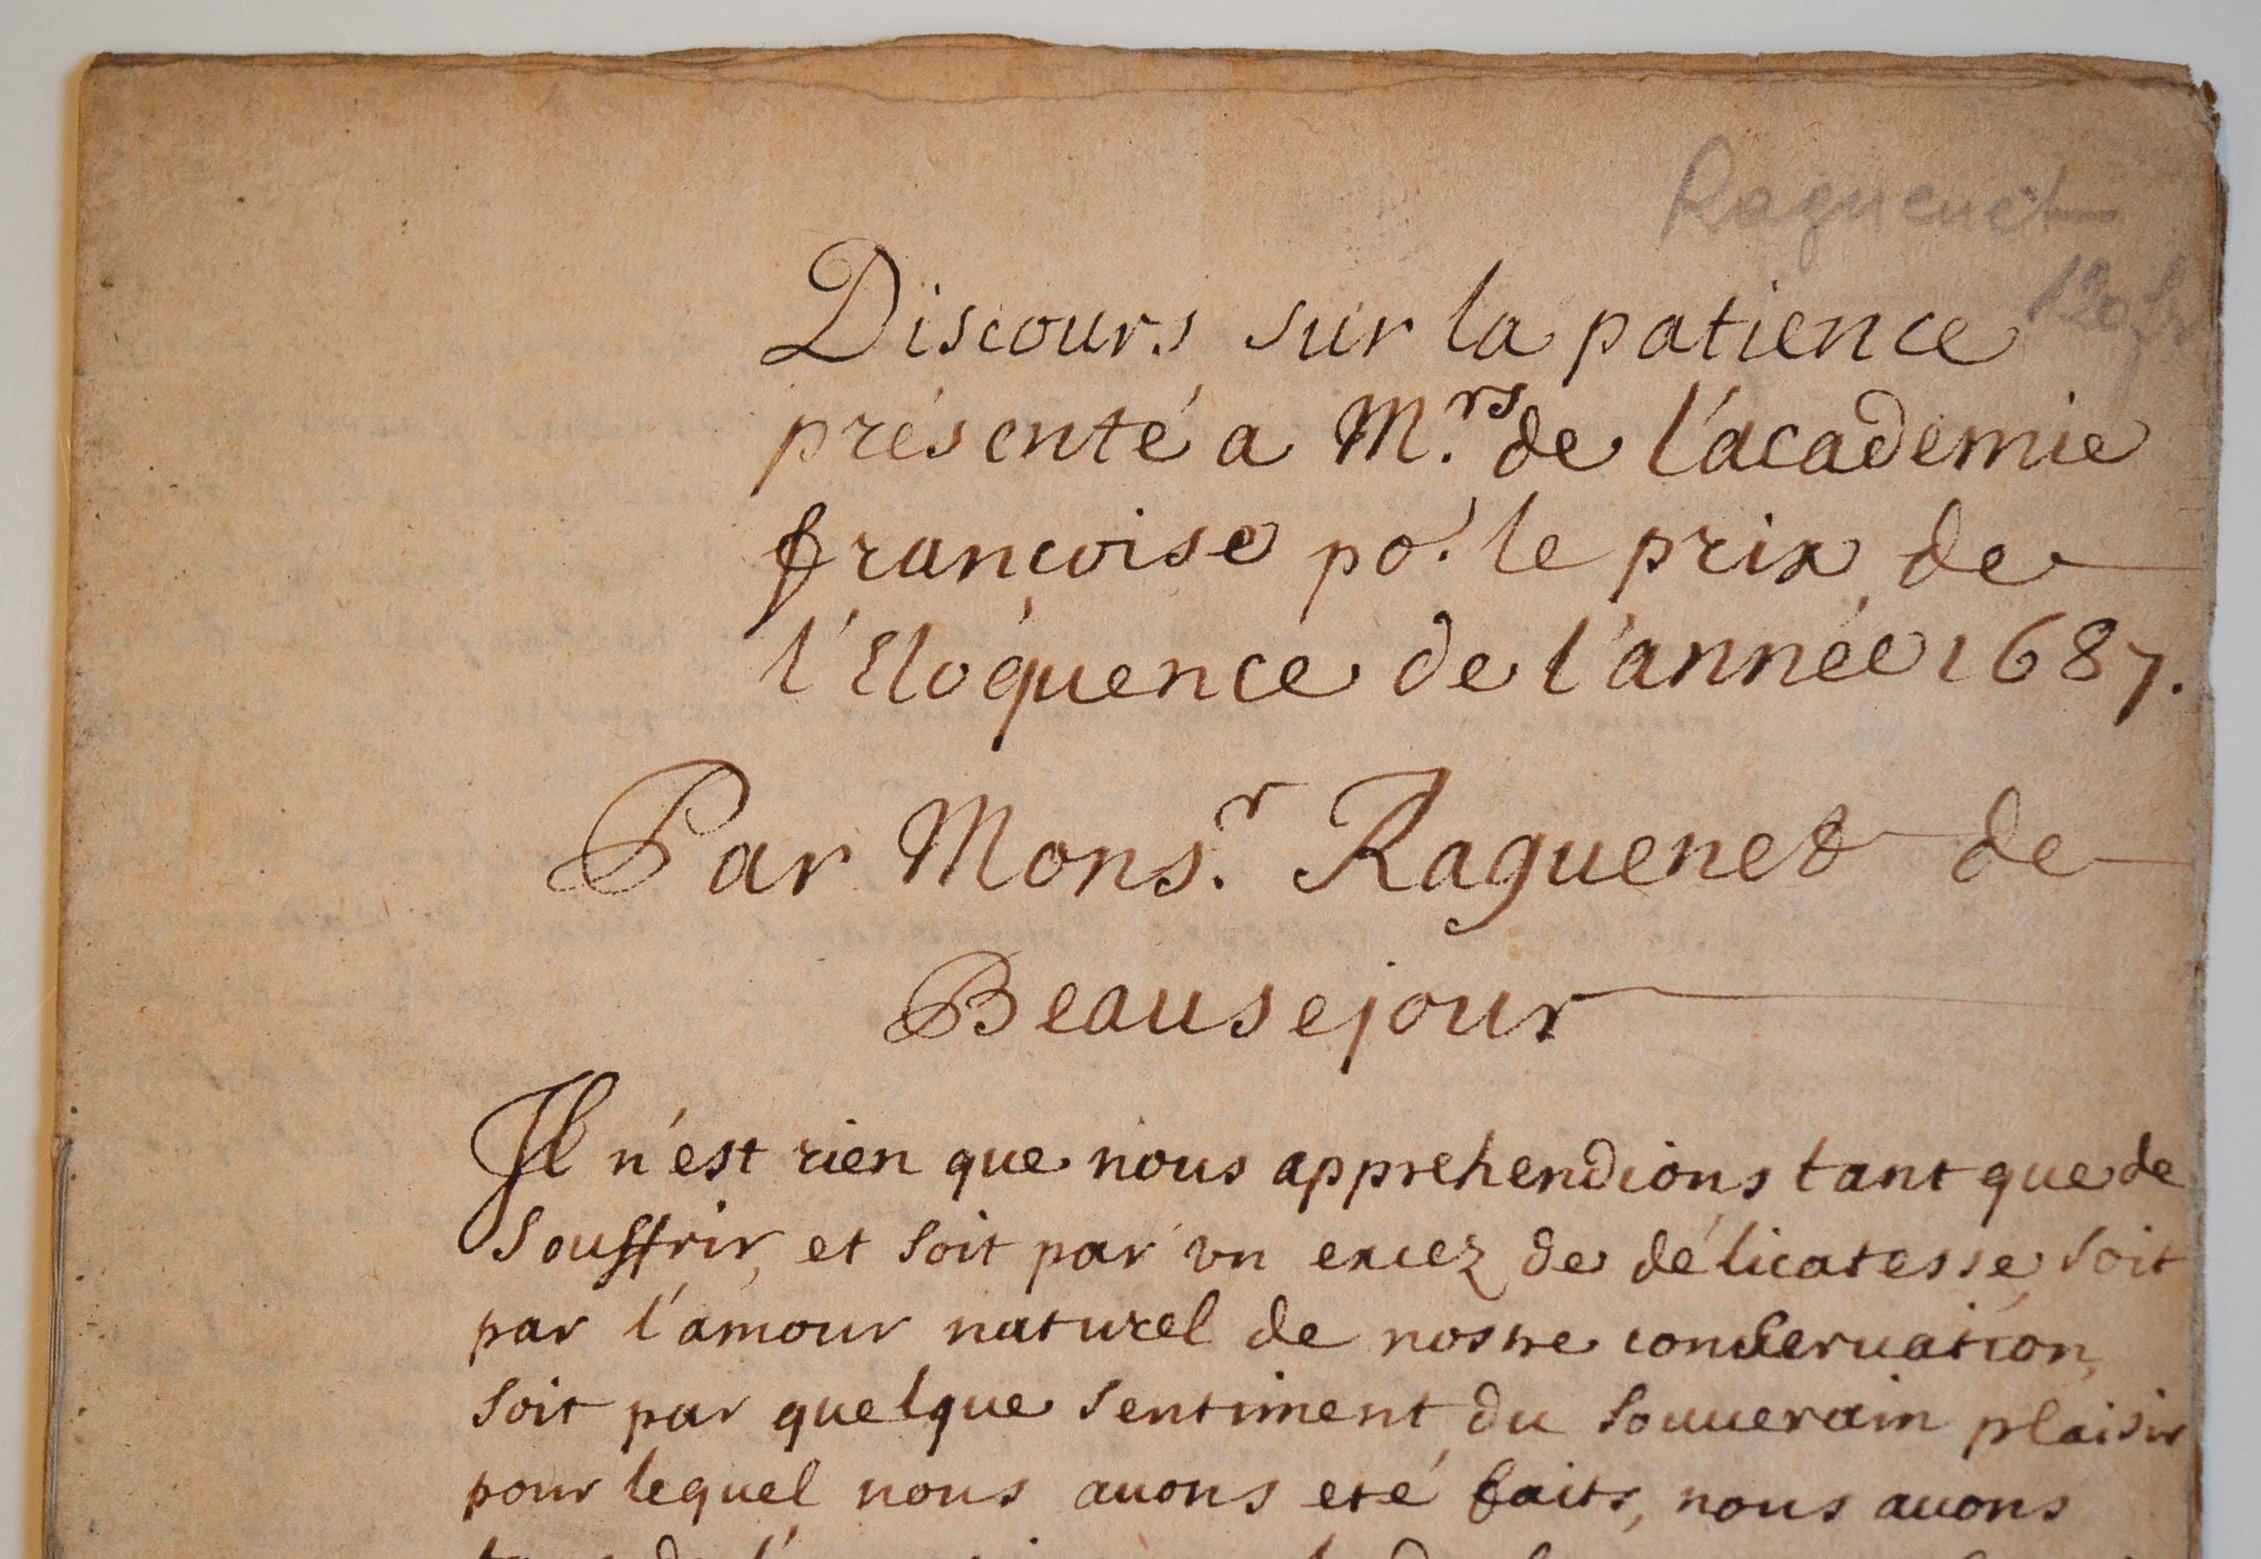 Raguenet
120 fr
Discours sur la patience
présenté a M.rs de l'academie
françoise po.r le prix de
l'Eloquence de l'année 1687.
Par Mons.r Raguenet de
Beausejour
Il n'est rien que nous apprehendions tant que de
souffrir, et soit par vn excez de délicatesse, soit
par l'amour naturel de nostre conseruation,
soit par quelque sentiment du souuerain plaisir
pour lequel nous auons eté faits, nous auons